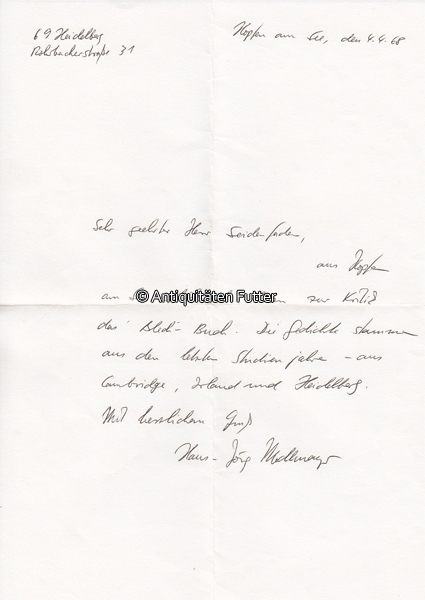 69 Heidelberg
Rohrbacherstraße 31
Hopfen am See, den 4.4.68
Sehr geehrter Herr Seidenfaden,
aus Hopfen
am zur Kritik
© Antiquitäten Futter
das Buch. Die Gedichte stammen
aus den letzten Studienjahren – aus
Cambridge, Irland und Heidelberg.
Mit herzlichem Gruß
Hans-Jörg Modlmayr